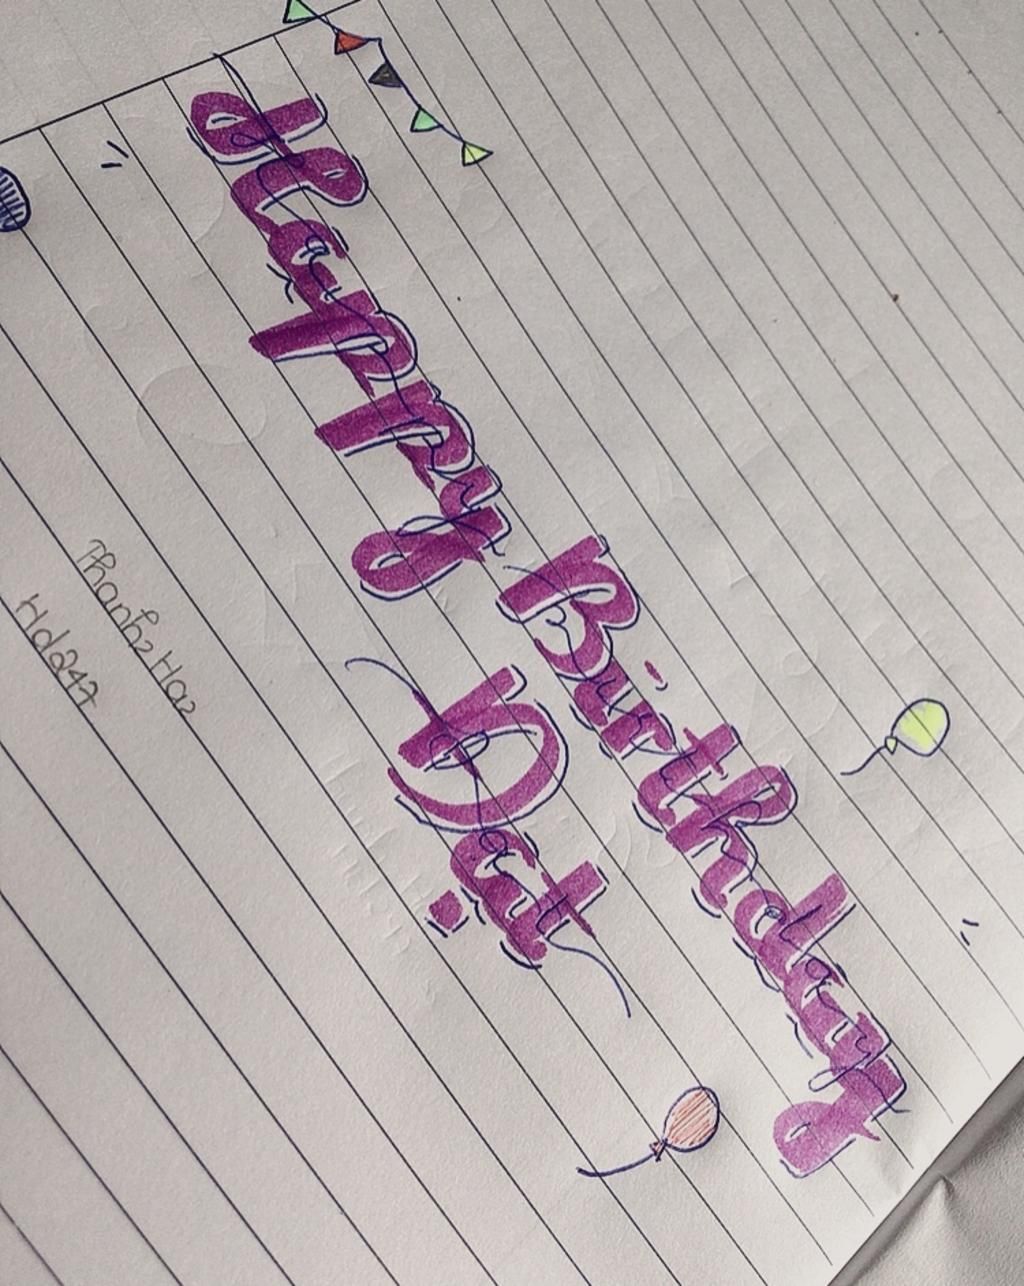 Happy Birthday
Đạt
Thanhz Haz
Hdd247